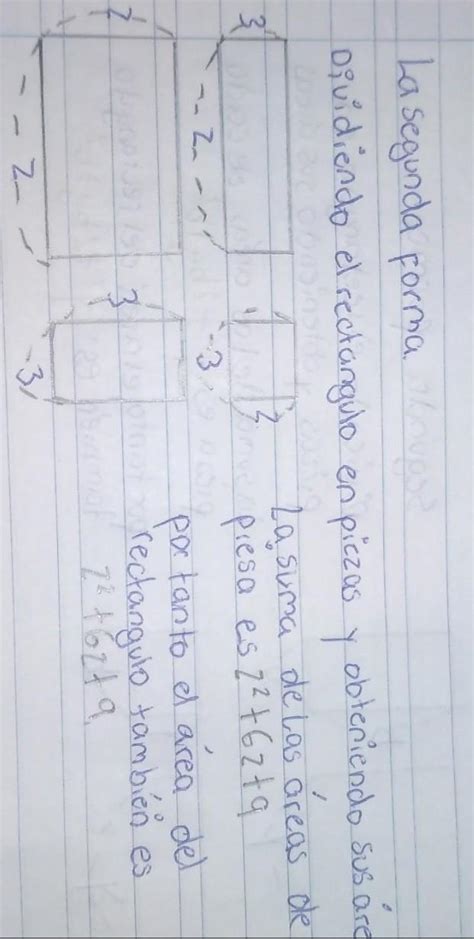 La segunda forma.
Dividiendo el rectangulo en piezas y obteniendo sus áre
3
2
2
3
La suma de las áreas de
piesa es z²+6z+9
z
2
3
3
por tanto el área del
rectangulo también es
z²+6z+9